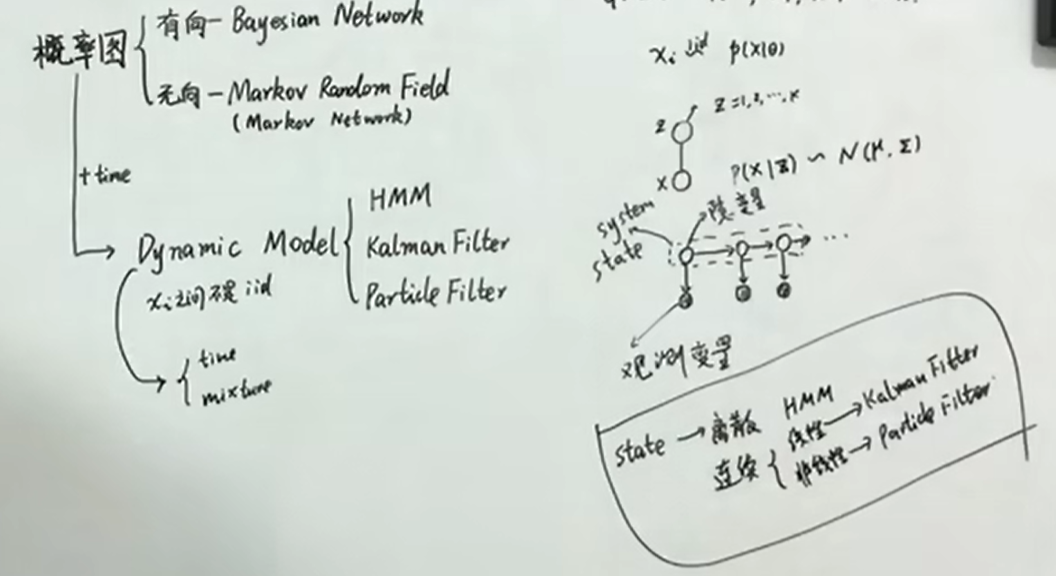 概率图
有向- Bayesian Network
无向- Markov Random Field
(Markov Network)
+time
Dynamic Model
HMM
Kalman Filter
Particle Filter
xᵢ之间不是 iid
time
mixture
xᵢ iid p(x|θ)
z z=1,2,…,K
x p(x|z) ~ N(μ,Σ)
system
state
隐变量
...
观测变量
state → 离散 HMM
连续
线性 → Kalman Filter
非线性 → Particle Filter